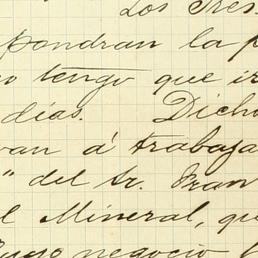 Los Tres
pondran la p
o tengo que ir
días. Dicho
van á trabaja
" del Sr. Fran
l Mineral, qu
negocio